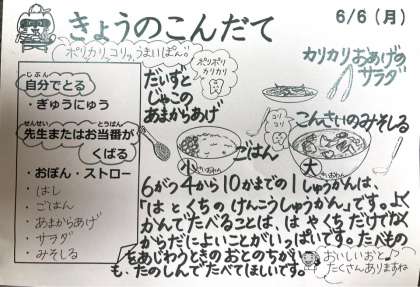 きょうのこんだて
6/6(月)
ポリカリッコリッ、うまいぱん♡
自分でとる
じぶん
・ぎゅうにゅう
せんせい
とうばん
先生またはお当番が
くばる
・おぼん・ストロー
・はし
・ごはん
・あまからあげ
・サラダ
・みそしる
ポリポリ
カリカリ
だいずと
じゃこの
あまからあげ
カリカリおあげの
サラダ
コリッ
こんさいのみそしる
小
ごはん
大
6がつ4から10かまでの1しゅうかんは、
「はとくちのけんこうしゅうかん」です。よく
かんでたべることは、はやくちだけでなく
からだによいことがいっぱいです。たべもの
をあじわうときのおとのちがい
も、たのしんでたべてほしいです。
おいしいおと♪
たくさんありますね